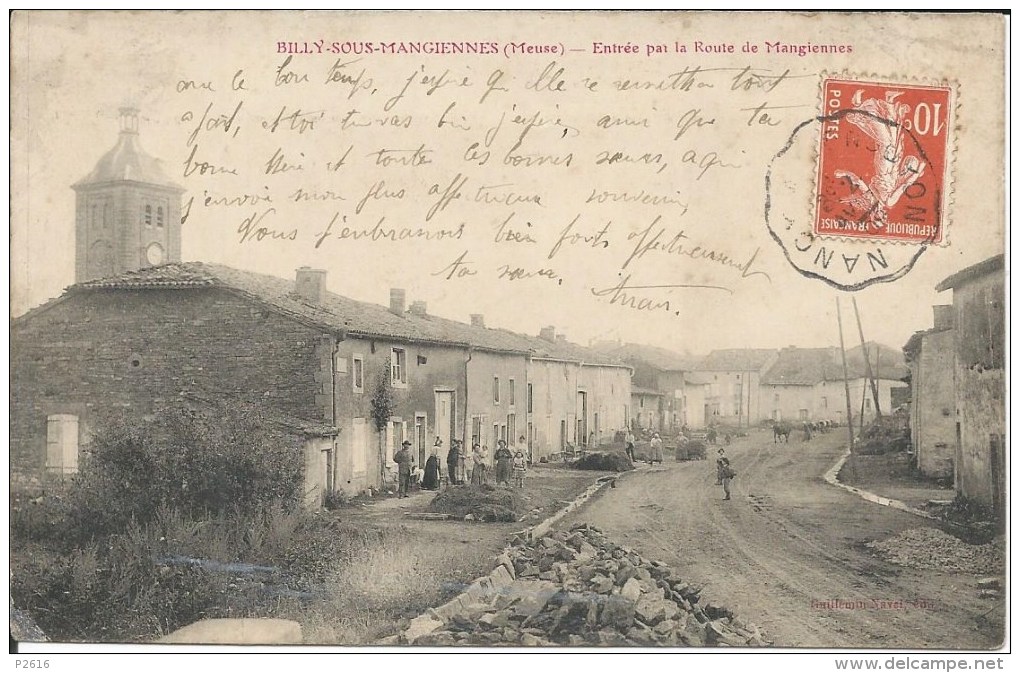 BILLY-SOUS-MANGIENNES (Meuse) — Entrée par la Route de Mangiennes
que le bon temps, j'espère qu'Elle se remettra tout
à fait, et toi tu vas bien j'espère, ainsi que ta
bonne Mère et toutes les bonnes sœurs, à qui
j'envoie mon plus affectueux souvenir,
Vous j'embrassons bien fort, affectueusement
ta sœur.
10c
POSTES
REPUBLIQUE FRANÇAISE
NANCY
Guillemin Navel, édit.
P2616
www.delcampe.net